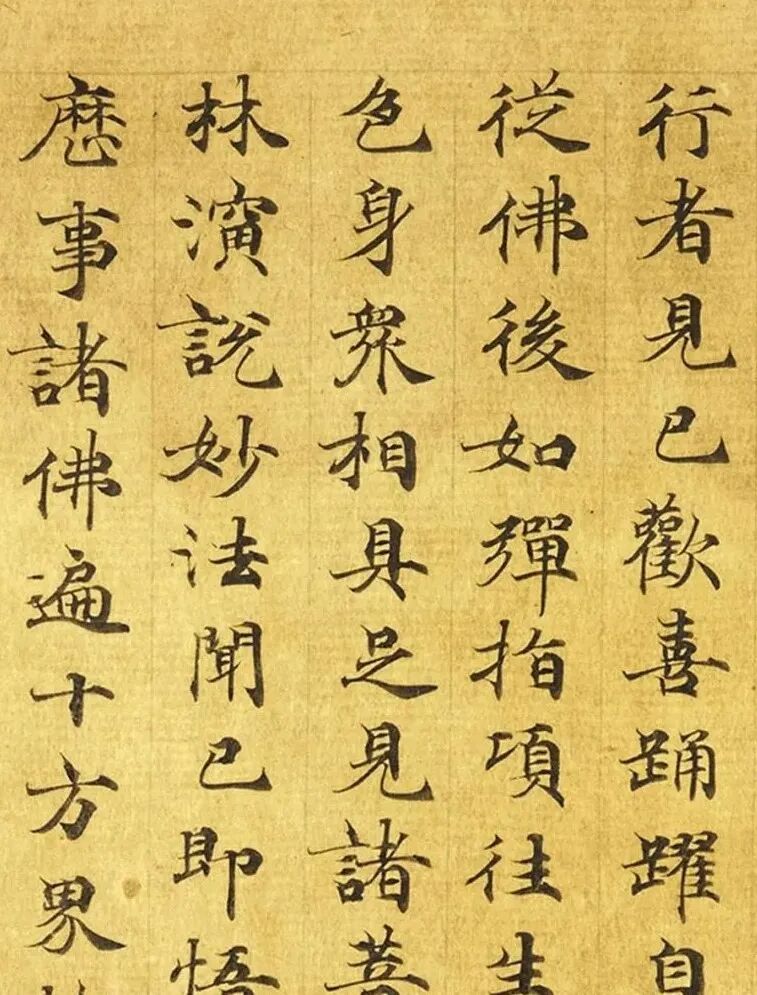 行者見已歡喜踴躍自
從佛後如彈指項往生
色身衆相具足見諸菩
林演說妙法聞已即悟
歷事諸佛遍十方界